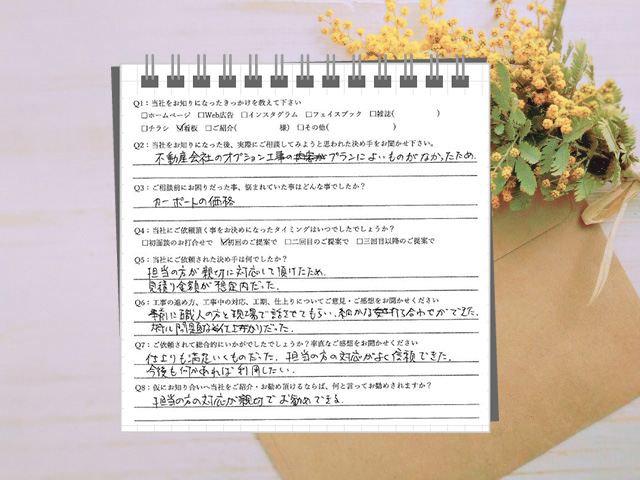 Q1：当社をお知りになったきっかけを教えて下さい
□ホームページ □Web広告 □インスタグラム □フェイスブック □雑誌( )
□チラシ ☑看板 □ご紹介( 様) □その他( )
Q2：当社をお知りになった後、実際にご相談してみようと思われた決め手をお聞かせ下さい。
不動産会社のオプション工事の プランによいものがなかったため。
Q3：ご相談前にお困りだった事、悩まれていた事はどんな事でしたか？
カーポートの価格
Q4：当社にご依頼頂く事をお決めになったタイミングはいつでしたでしょうか？
□初面談のお打合せで ☑初回のご提案で □二回目のご提案で □三回目以降のご提案で
Q5：当社にご依頼された決め手は何でしたか？
担当の方が親切に対応して頂けたため。
見積り金額が想定内だった。
Q6：工事の進め方、工事中の対応、工期、仕上りについてご意見・ご感想をお聞かせください
事前に職人の方と現場で話させてもらい、細かな 合わせができた。
問題なく仕上がりだった。
Q7：ご依頼されて総合的にいかがでしたでしょうか？率直なご感想をお聞かせください
仕上りも満足いくものだった。担当の方の対応がよく信頼できた。
今後も何かあれば利用したい。
Q8：仮にお知り合いへ当社をご紹介・お勧め頂けるならば、何と言ってお勧めされますか？
担当の方の対応が親切でお勧めできる